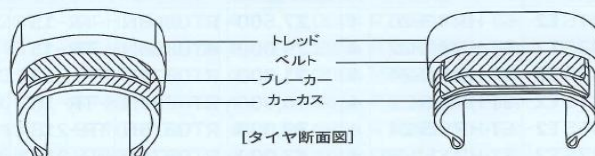 トレッド
ベルト
ブレーカー
カーカス
[タイヤ断面図]